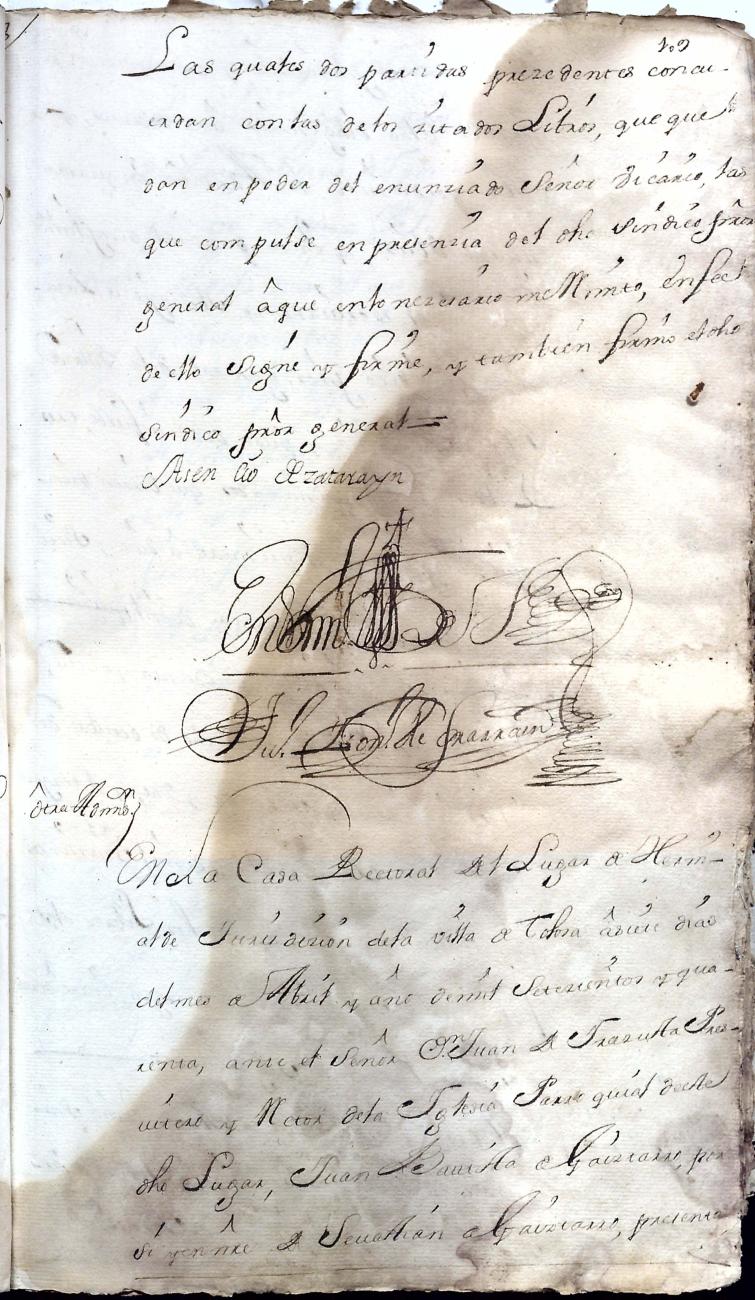 109
Las quales dos partidas prezedentes concu-
erdan con las de los zitados Libros, que que
dan en poder del enunziado Señor Vicario, las
que compulse en presenzia del dho Sindico prôr
general âque en lo nezesario me Rmito, En feê
de ello Signé y firmé, y tambien firmó el dho
Sindico prôr general =
Asencio de Yzatarayn
En de
de Yrarrain
Ôtra
En La Casa Rectoral del Lugar de Herni-
alde Jurisdizion de la Villa de Tolosa â dias
del mes de Abril y año de mil Setezientos y qua-
renta, ante el Señor Dn Juan de Yrazusta Pres-
vitero y Retor de la Iglesia Parroquial de este
dho Lugar, Juan Bautista de Gaiztarro, por
si y en nre de Sevastian de Gaiztarro, presento